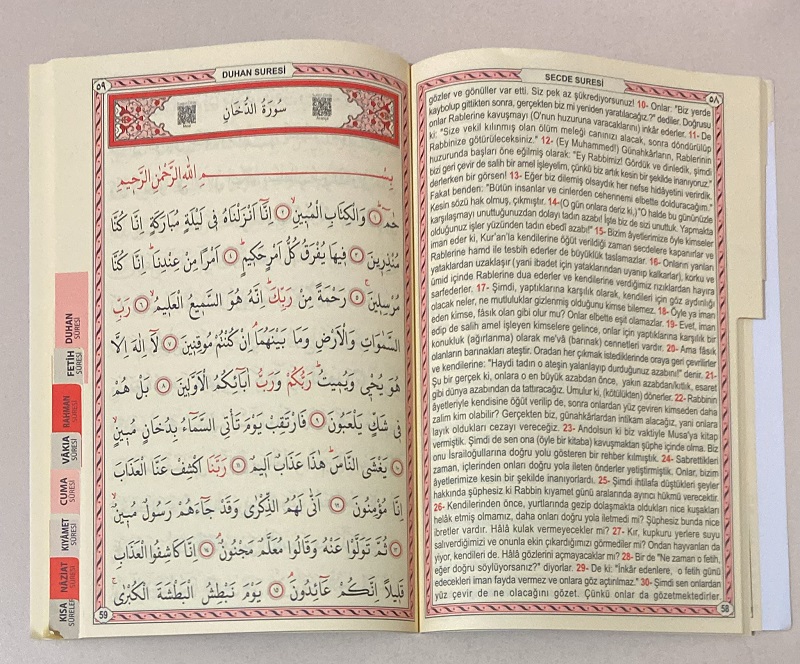 ٥٩
DUHAN SURESİ
سُورَةُ الدُّخَانِ
بِسْمِ اللهِ الرَّحْمٰنِ الرَّحِيمِ
حٰمٓ ۚ ١ وَالْكِتَابِ الْمُبِينِ ٢ اِنَّٓا اَنْزَلْنَاهُ فِى لَيْلَةٍ مُبَارَكَةٍ اِنَّا كُنَّا
مُنْذِرِينَ ٣ فِيهَا يُفْرَقُ كُلُّ اَمْرٍ حَكِيمٍ ٤ اَمْرًا مِنْ عِنْدِنَا اِنَّا كُنَّا
مُرْسِلِينَ ٥ رَحْمَةً مِنْ رَبِّكَ اِنَّهُ هُوَ السَّمِيعُ الْعَلِيمُ ٦ رَبِّ
السَّمٰوَاتِ وَالْاَرْضِ وَمَا بَيْنَهُمَا اِنْ كُنْتُمْ مُوقِنِينَ ٧ لَٓا اِلٰهَ اِلَّا
هُوَ يُحْيِى وَيُمِيتُ رَبُّكُمْ وَرَبُّ اٰبَٓائِكُمُ الْاَوَّلِينَ ٨ بَلْ هُمْ
فِى شَكٍّ يَلْعَبُونَ ٩ فَارْتَقِبْ يَوْمَ تَأْتِى السَّمَٓاءُ بِدُخَانٍ مُبِينٍ
١٠ يَغْشَى النَّاسَ هٰذَا عَذَابٌ اَلِيمٌ ١١ رَبَّنَا اكْشِفْ عَنَّا الْعَذَابَ
اِنَّا مُؤْمِنُونَ ١٢ اَنّٰى لَهُمُ الذِّكْرٰى وَقَدْ جَٓاءَهُمْ رَسُولٌ مُبِينٌ
١٣ ثُمَّ تَوَلَّوْا عَنْهُ وَقَالُوا مُعَلَّمٌ مَجْنُونٌ ١٤ اِنَّا كَاشِفُوا الْعَذَابِ
قَلِيلًا اِنَّكُمْ عَٓائِدُونَ ١٥ يَوْمَ نَبْطِشُ الْبَطْشَةَ الْكُبْرٰى
59
DUHAN
SURESİ
FETİH
SÛRESİ
RAHMAN
SÛRESİ
VÂKIA
SÛRESİ
CUMA
SÛRESİ
KIYÂMET
SÛRESİ
NÂZİAT
SÛRESİ
KISA
SÛRELER
٥٨
SECDE SURESİ
gözler ve gönüller var etti. Siz pek az şükrediyorsunuz! 10- Onlar: "Biz yerde
kaybolup gittikten sonra, gerçekten biz mi yeniden yaratılacağız?" dediler. Doğrusu
onlar Rablerine kavuşmayı (O'nun huzuruna varacaklarını) inkâr ederler. 11- De
ki: "Size vekil kılınmış olan ölüm meleği canınızı alacak, sonra döndürülüp
Rabbinize götürüleceksiniz." 12- (Ey Muhammed!) Günahkârların, Rablerinin
huzurunda başları öne eğilmiş olarak: "Ey Rabbimiz! Gördük ve dinledik, şimdi
bizi geri çevir de salih bir amel işleyelim, çünkü biz artık kesin bir şekilde inanıyoruz."
derlerken bir görsen! 13- Eğer biz dilemiş olsaydık her nefse hidâyetini verirdik.
Fakat benden: "Bütün insanlar ve cinlerden cehennemi elbette dolduracağım."
Kesin sözü hak olmuş, çıkmıştır. 14-(O gün onlara deriz ki,)"O halde bu gününüzle
karşılaşmayı unuttuğunuzdan dolayı tadın azabı! İşte biz de sizi unuttuk. Yapmakta
olduğunuz işler yüzünden tadın ebedî azabı!" 15- Bizim âyetlerimize öyle kimseler
iman eder ki, Kur'an'la kendilerine öğüt verildiği zaman secdelere kapanırlar ve
Rablerine hamd ile tesbih ederler de büyüklük taslamazlar. 16- Onların yanları
yataklardan uzaklaşır (yani ibadet için yataklarından uyanıp kalkarlar), korku ve
ümid içinde Rablerine dua ederler ve kendilerine verdiğimiz rızıklardan hayıra
sarfederler. 17- Şimdi, yaptıklarına karşılık olarak, kendileri için göz aydınlığı
olacak neler, ne mutluluklar gizlenmiş olduğunu kimse bilemez. 18- Öyle ya iman
eden kimse, fâsık olan gibi olur mu? Onlar elbette eşit olamazlar. 19- Evet, iman
edip de salih amel işleyen kimselere gelince, onlar için yaptıklarına karşılık bir
konukluk (ağırlanma) olarak me'vâ (barınak) cennetleri vardır. 20- Ama fâsık
olanların barınakları ateştir. Oradan her çıkmak istediklerinde oraya geri çevrilirler
ve kendilerine: "Haydi tadın o ateşin yalanlayıp durduğunuz azabını!" denir. 21-
Şu bir gerçek ki, onlara o en büyük azabdan önce, yakın azabdan/kıtlık, esaret
gibi dünya azabından da tattıracağız. Umulur ki, (kötülükten) dönerler. 22- Rabbinin
âyetleriyle kendisine öğüt verilip de, sonra onlardan yüz çeviren kimseden daha
zalim kim olabilir? Gerçekten biz, günahkârlardan intikam alacağız, yani onlara
layık oldukları cezayı vereceğiz. 23- Andolsun ki biz vaktiyle Musa'ya kitap
vermiştik. Şimdi de sen ona (öyle bir kitaba) kavuşmaktan şüphe içinde olma. Biz
onu İsrailoğullarına doğru yolu gösteren bir rehber kılmıştık. 24- Sabrettikleri
zaman, içlerinden onları doğru yola ileten önderler yetiştirmiştik. Onlar, bizim
âyetlerimize kesin bir şekilde inanıyorlardı. 25- Şimdi ihtilafa düştükleri şeyler
hakkında şüphesiz ki Rabbin kıyamet günü aralarında ayırıcı hükmü verecektir.
26- Kendilerinden önce, yurtlarında gezip dolaşmakta oldukları nice kuşakları
helâk etmiş olmamız, daha onları doğru yola iletmedi mi? Şüphesiz bunda nice
ibretler vardır. Hâlâ kulak vermeyecekler mi? 27- Kır, kupkuru yerlere suyu
salıverdiğimizi ve onunla ekin çıkardığımızı görmediler mi? Ondan hayvanları da
yiyor, kendileri de. Hâlâ gözlerini açmayacaklar mı? 28- Bir de "Ne zaman o fetih,
eğer doğru söylüyorsanız?" diyorlar. 29- De ki: "İnkâr edenlere, o fetih günü
edecekleri iman fayda vermez ve onlara göz açtırılmaz." 30- Şimdi sen onlardan
yüz çevir de ne olacağını gözet. Çünkü onlar da gözetmektedirler.
58